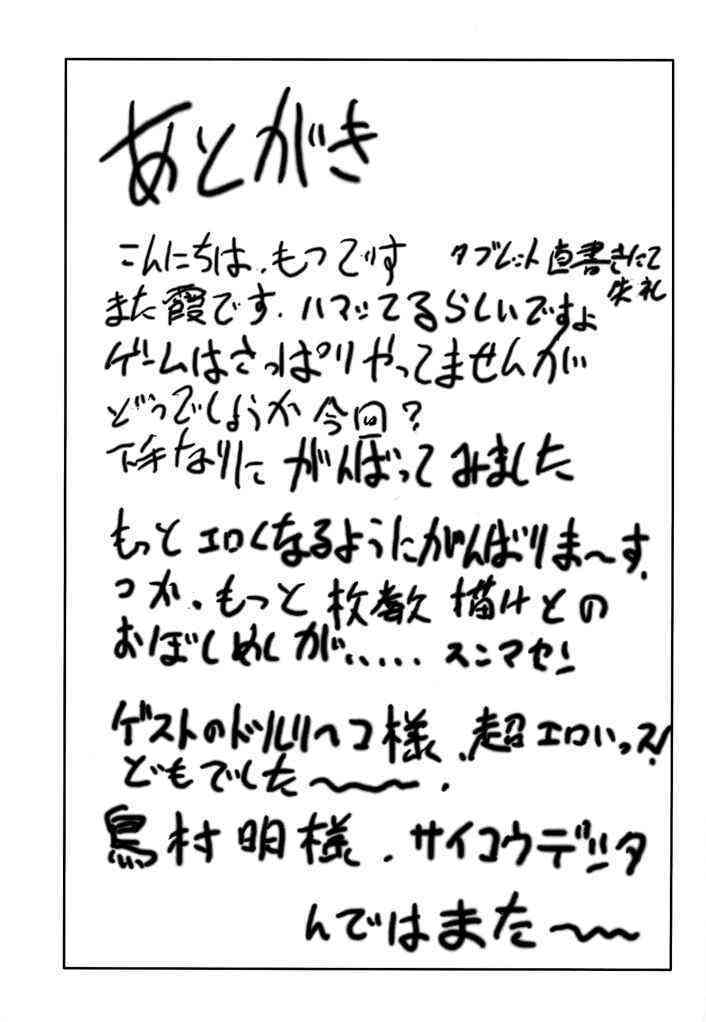 あとがき
こんにちは、もつです
タブレット直書きにて
失礼
また霞です。ハマッてるらしいですよ
ゲームはさっぱりやってませんが
どうでしょうか今回?
下手なりにがんばってみました
もっとエロくなるようにがんばりま〜す。
つか、もっと枚数描けとの
おぼしめしが‥‥‥スンマセン
ゲストのドリルヘコ様、超エロいっス!
どもでした〜〜。
鳥村明様、サイコウデシタ
んではまた〜〜